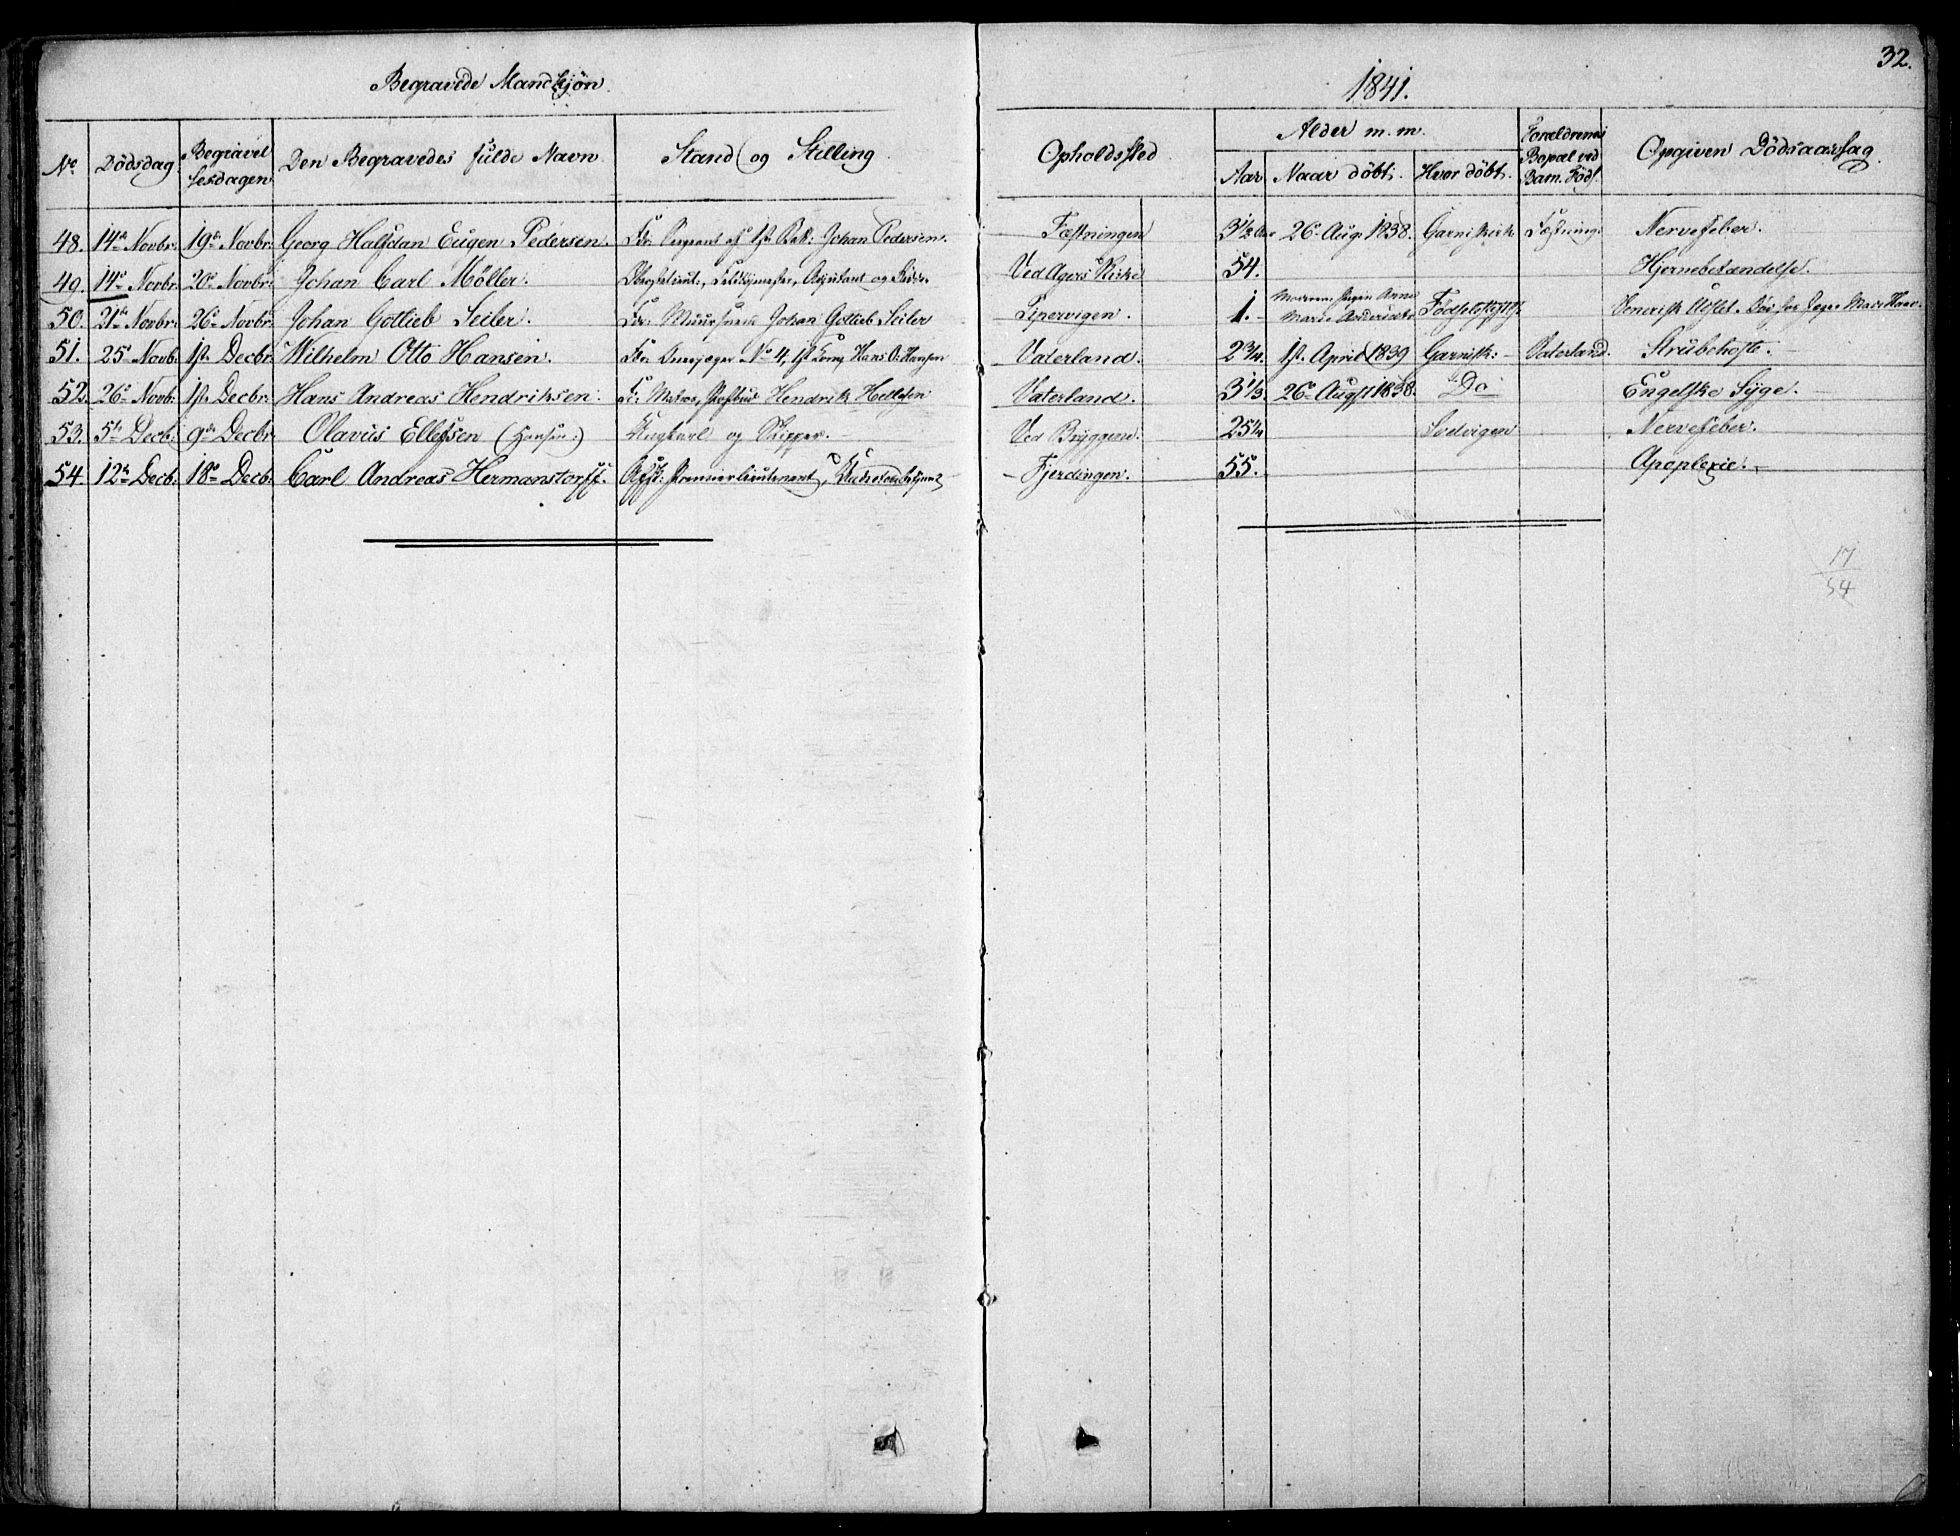 32.
Begravede Mandkjön.
1841.
No Dödsdag Begravelsesdagen Den Begravedes fulde Navn Stand og Stilling Opholdssted Alder m. m. Forældrenes Bopæl ved Barn. Föds. Opgiven Dödsaarsag
Aar Naar döbt. Hvor döbt.
48. 14de Novbr: 19de Novbr: Georg Halfdan Eugen Pedersen. Johan Pedersen. Fæstningen 3½ Aar 26de Aug. 1838. Garnis Kirk Fæstning: Nervefeber.
49. 14de Novbr: 20de Novbr: Johan Carl Möller. Adjutant og Ved Agers Kirke 54. Hjernebetændelse.
50. 21de Novbr: 26de Novbr: Johan Gotlieb Seiler. Johan Gotlieb Seiler Pipervigen. 1. Födselsstift: Venerisk
51. 25de Novb: 1st Decbr: Wilhelm Otto Hansen. No 4, Hans O. Hansen Vaterland. 2¾ 1st April 1839 Garnisk: Vaterland. Strubehoste.
52. 26de Novb: 1st Decbr: Hans Andreas Hendriksen. Hendrik Hellesen Vaterland. 3⅓ 26de Augst 1838. Do Engelske Syge.
53. 5te Decb: 9de Decbr: Olavus Ellefsen (Hansen:) Ungkarl og Skipper. Ved Bryggene. 25¼ Sodvigen Nervefeber.
54 12te Decb: 18de Decb: Carl Andreas Hermanstorff. Afsk: Premierlieutenant, Fjerdingen. 55. Apoplexie.
17
54